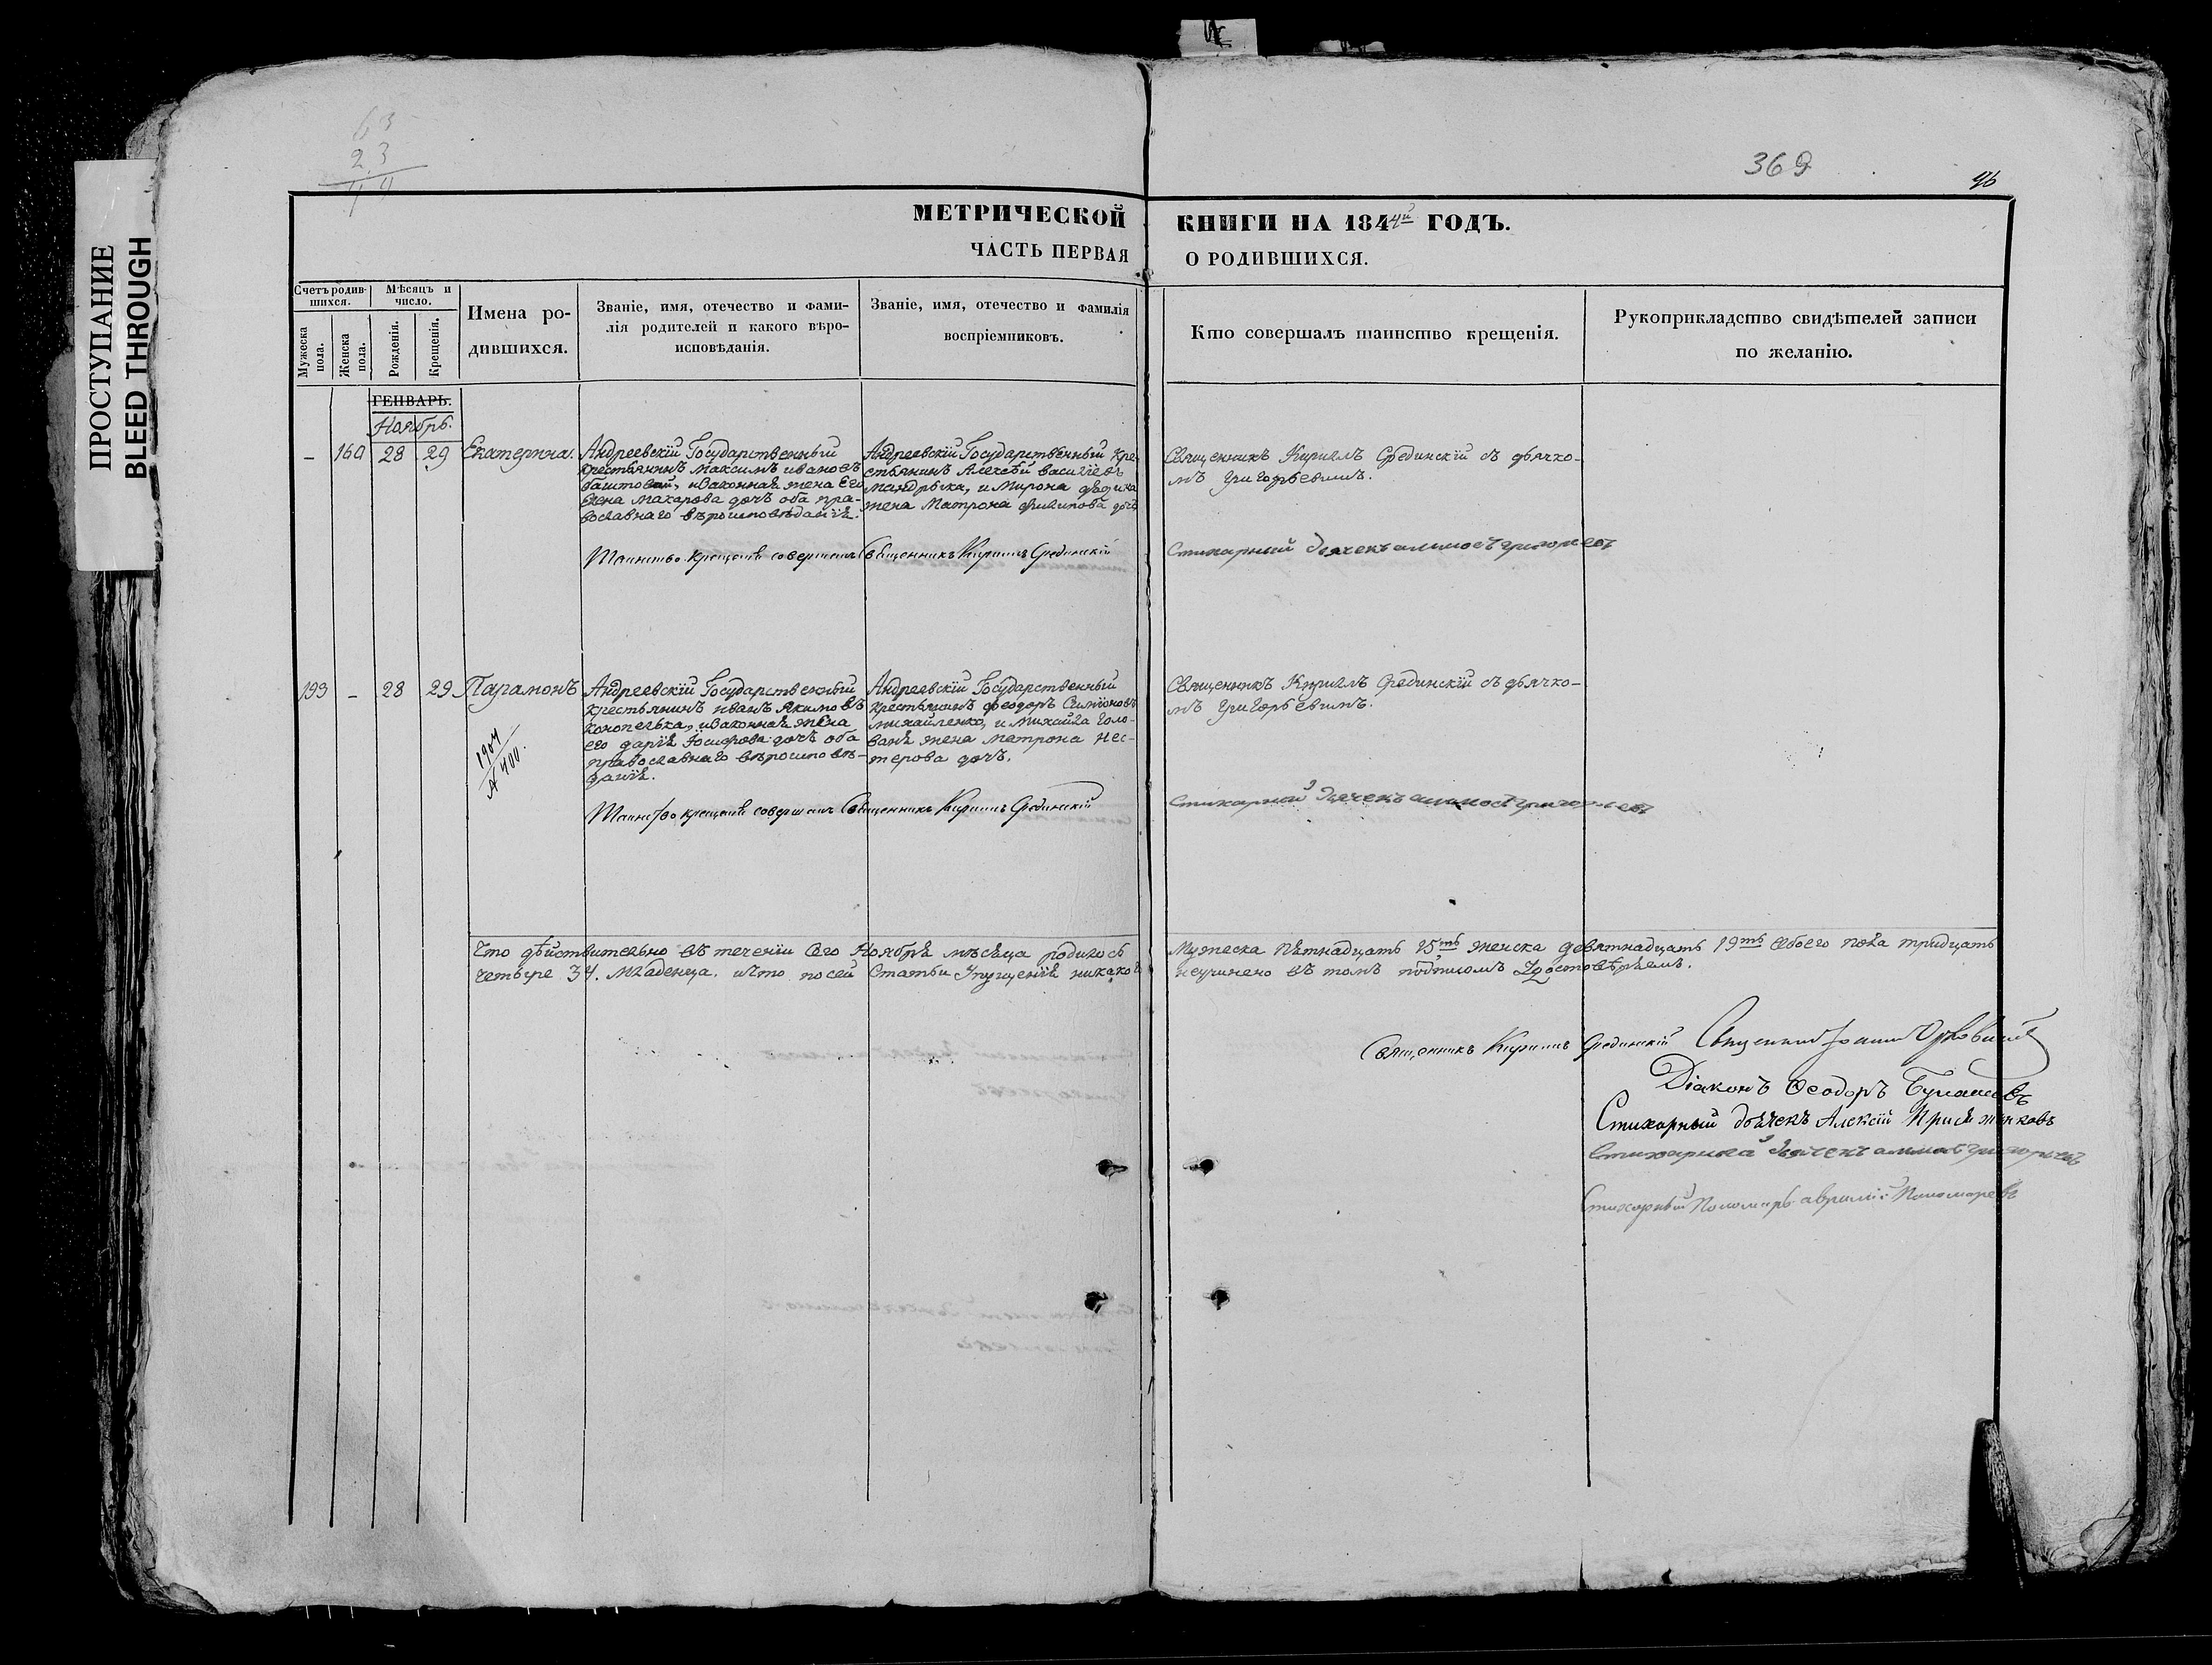 ПРОСТУПАНИЕ
BLEED THROUGH
63
23
369
96
МЕТРИЧЕСКОЙ КНИГИ НА 1844й ГОДЪ.
ЧАСТЬ ПЕРВАЯ О РОДИВШИХСЯ.
Счетъ родив-
шихся.
Мужеска пола.
Женска пола.
Мѣсяцъ и
число.
Рожденія.
Крещенія.
Имена ро-
дившихся.
Званіе, имя, отечество и фами-
лія родителей и какого вѣро-
исповѣданія.
Званіе, имя, отечество и фамилія
воспріемниковъ.
Кто совершалъ таинство крещенія.
Рукоприкладство свидѣтелей записи
по желанію.
ГЕНВАРЬ.
Ноябрь.
– 160 28 29 Екатерина.
Андреевскій Государственный
крестьянинъ Максимъ Ивановъ
Баштовый, изаконная жена Его
Елена Макарова дочь оба пра-
вославнаго вѣроисповѣданія.
Андреевскій Государственный кре-
стьянинъ Алексѣй Васильевъ
Мандрыка, и Мирона
жена Матрона Филипова дочь
Священникъ Кирилъ Срединскій съ дьячко-
мъ Григорьевымъ.
Таинство крещенія совершалъ Священникъ Кирилъ Срединскій
Стихарный дьячекъ Григорьевъ
193 – 28 29 Парамонъ
1904
400.
Андреевскій Государственный
крестьянинъ Иванъ Якимовъ
Конопелька, изаконная жена
его Дарія Іосифова дочь оба
православнаго вѣроисповѣ-
данія.
Андреевскій Государственный
крестьянинъ Феодоръ Симіоновъ
Михайленко, и Михаила Голо-
ваня жена Матрона Нес-
терова дочь.
Священникъ Кирилъ Срединскій съ дьячко-
мъ Григорьевымъ.
Таинство крещенія совершалъ Священникъ Кирилъ Срединскій
Стихарной дьячекъ Григорьевъ
Что дѣйствительно въ теченіи Сего Ноября мѣсяца родилось Мужеска пятнадцать 15ть женска девятнадцать 19ть обоего пола тридцать
четыре 34. младенца. ичто посей Статьи Упущенія никакого неучинено въ томъ подписомъ Удостовѣряемъ.
Священникъ Кирилъ Срединскій
Священникъ Іоаннъ
Діаконъ Феодоръ
Стихарный дьячекъ Алексій
Стихарной дьячекъ Григорьевъ
Стихарный Пономарь Пономаревъ